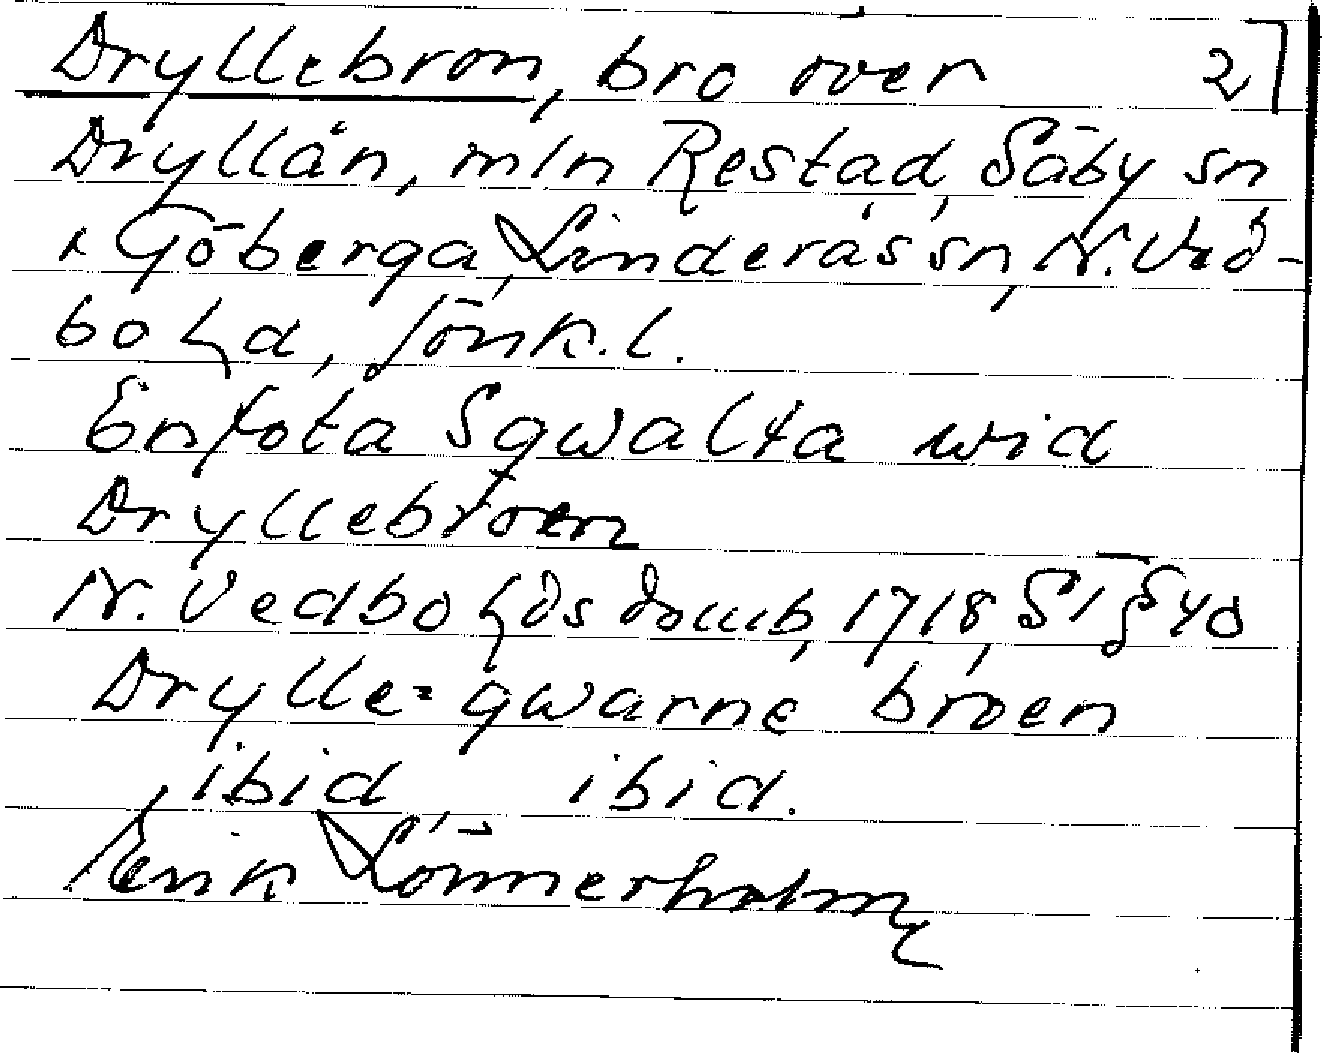 Dryllebron, bro över 27
Dryllån, mln Restad, Säby sn
o. Göberga, Linderås sn, N. Ved-
bo hd, Jönk. l.
Enfota Sqwalta wid
Dryllebroen
N. Vedbo hds domb, 1718, S1 § 40
Drylle=qwarne broen
ibid, ibid.
Erik Lönnerholm